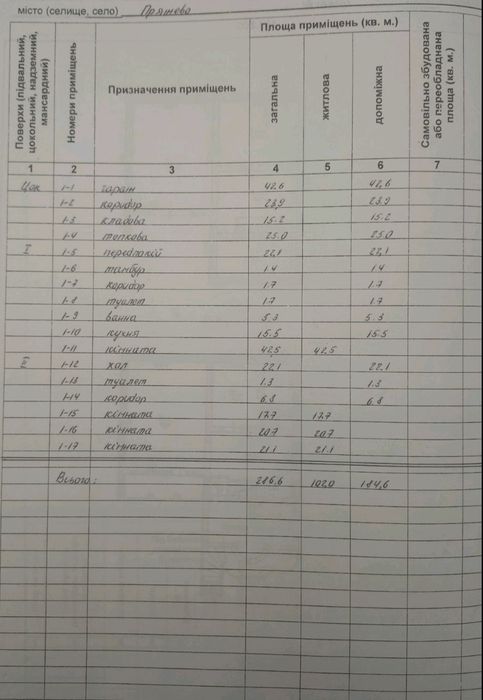 місто (селище, село) Пряжево
Поверхи (підвальний, цокольний, надземний, мансардний)
Номери приміщень
Призначення приміщень
Площа приміщень (кв. м.)
загальна
житлова
допоміжна
Самовільно збудована або переобладнана площа (кв. м.)
1 2 3 4 5 6 7
Цок 1-1 гараж 42,6 42,6
1-2 коридор 23,9 23,9
1-3 кладова 15.2 15.2
1-4 топкова 25.0 25.0
I 1-5 передпокій 22,1 22,1
1-6 тамбур 1.4 1.4
1-7 коридор 1.7 1.7
1-8 туалет 1.7 1.7
1-9 ванна 5.3 5.3
1-10 кухня 15.5 15.5
1-11 кімната 42,5 42,5
II 1-12 хол 22,1 22,1
1-13 туалет 1.3 1.3
1-14 коридор 6.8 6.8
1-15 кімната 17.7 17.7
1-16 кімната 20.7 20.7
1-17 кімната 21.1 21.1
Всього: 286.6 102.0 184,6